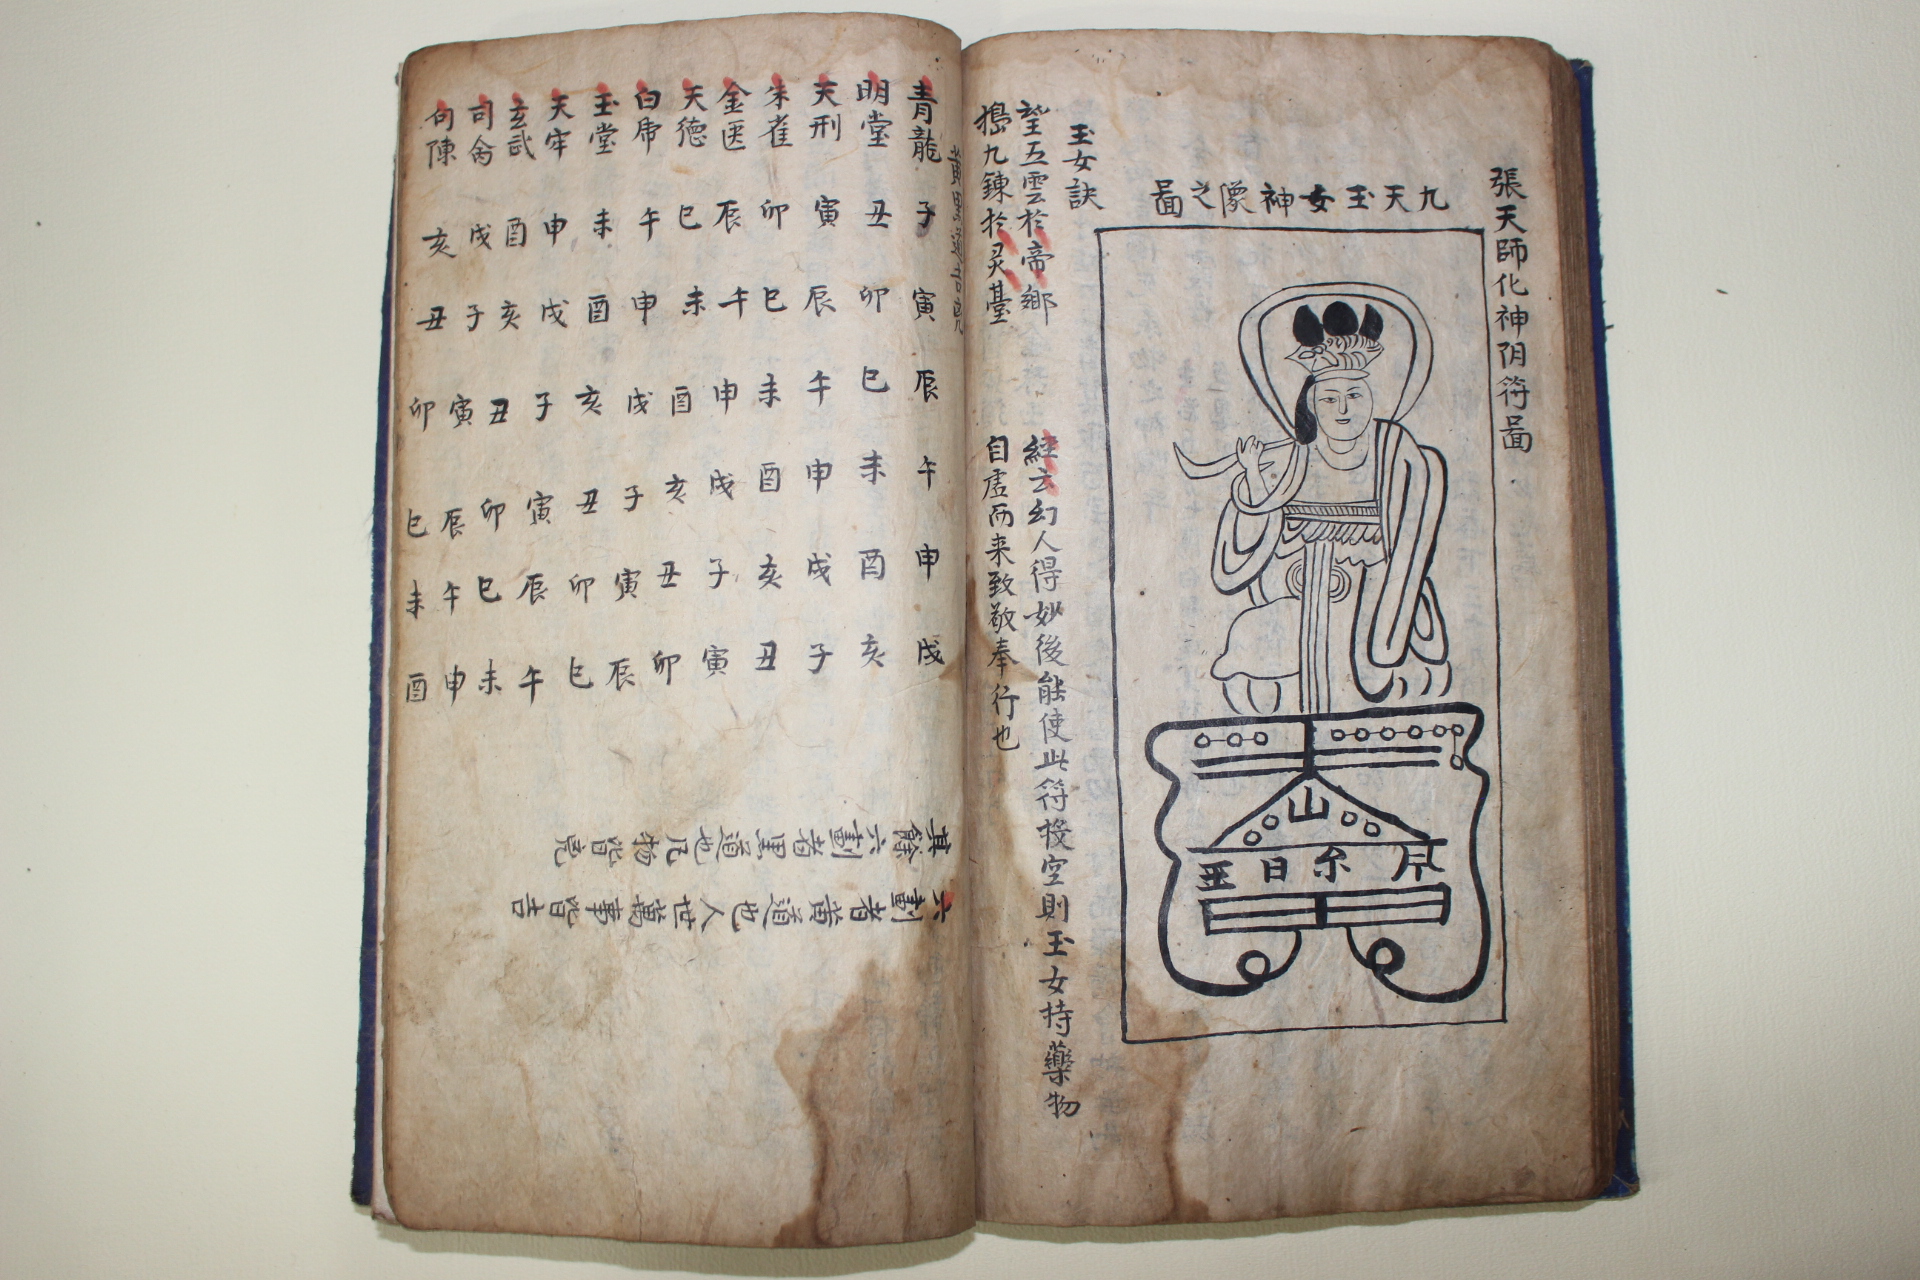 張天師化神阴符啚
九天玉女神像之啚
山
日
玉女訣
望五雲於帝鄉 經云幻人得妙後能使此符投空則玉女持藥物
搗九鍊於灵臺 自虛而来致敬奉行也
黄黑道吉凶
青龍 子 寅 辰 午 申 戌
明堂 丑 卯 巳 未 酉 亥
天刑 寅 辰 午 申 戌 子
朱雀 卯 巳 未 酉 亥 丑
金匱 辰 午 申 戌 子 寅
天德 巳 未 酉 亥 丑 卯
白虎 午 申 戌 子 寅 辰
玉堂 未 酉 亥 丑 卯 巳
天牢 申 戌 子 寅 辰 午
玄武 酉 亥 丑 卯 巳 未
司命 戌 子 寅 辰 午 申
句陳 亥 丑 卯 巳 未 酉
六劃者黄道也人世萬事皆吉
其餘六劃者黑道也凡物皆兇